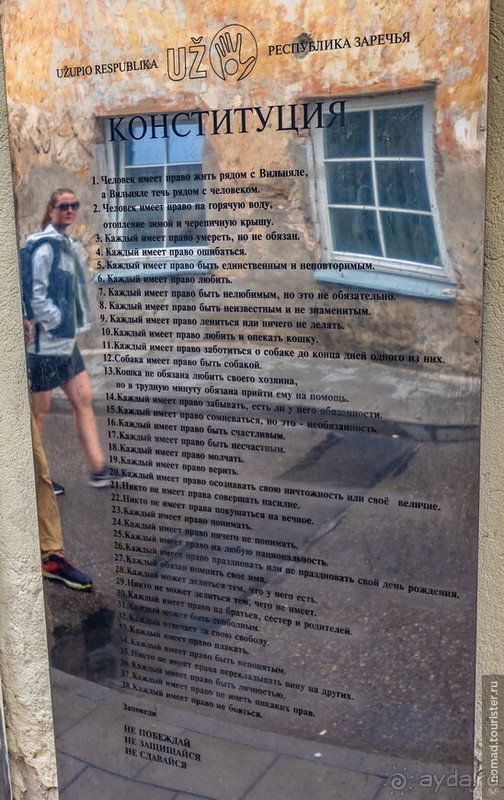 UŽUPIO RESPUBLIKA
UŽ
РЕСПУБЛИКА ЗАРЕЧЬЯ
КОНСТИТУЦИЯ
1. Человек имеет право жить рядом с Вильняле,
а Вильняле течь рядом с человеком.
2. Человек имеет право на горячую воду,
отопление зимой и черепичную крышу.
3. Каждый имеет право умереть, но не обязан.
4. Каждый имеет право ошибаться.
5. Каждый имеет право быть единственным и неповторимым.
6. Каждый имеет право любить.
7. Каждый имеет право быть нелюбимым, но это не обязательно.
8. Каждый имеет право быть неизвестным и не знаменитым.
9. Каждый имеет право лениться или ничего не делать.
10.Каждый имеет право любить и опекать кошку.
11.Каждый имеет право заботиться о собаке до конца дней одного из них.
12.Собака имеет право быть собакой.
13.Кошка не обязана любить своего хозяина,
но в трудную минуту обязана прийти ему на помощь.
14.Каждый имеет право забывать, есть ли у него обязанности.
15.Каждый имеет право сомневаться, но это - необязанность.
16.Каждый имеет право быть счастливым.
17.Каждый имеет право быть несчастным.
18.Каждый имеет право молчать.
19.Каждый имеет право верить.
20.Каждый имеет право осознавать свою ничтожность или своё величие.
21.Никто не имеет права совершать насилие.
22.Никто не имеет права покушаться на вечное.
23.Каждый имеет право понимать.
24.Каждый имеет право ничего не понимать.
25.Каждый имеет право на любую национальность.
26.Каждый имеет право праздновать или не праздновать свой день рождения.
27.Каждый обязан помнить свое имя.
28.Каждый может делиться тем, что у него есть.
29.Никто не может делиться тем, чего не имеет.
30.Каждый имеет право на братьев, сестер и родителей.
31.Каждый может быть свободным.
32.Каждый отвечает за свою свободу.
33.Каждый имеет право плакать.
34.Каждый имеет право быть непонятым.
35.Никто не имеет права перекладывать вину на других.
36.Каждый имеет право быть личностью.
37.Каждый имеет право не иметь никаких прав.
38.Каждый имеет право не бояться.
Заповеди
НЕ ПОБЕЖДАЙ
НЕ ЗАЩИЩАЙСЯ
НЕ СДАВАЙСЯ
© nomad.tourister.ru